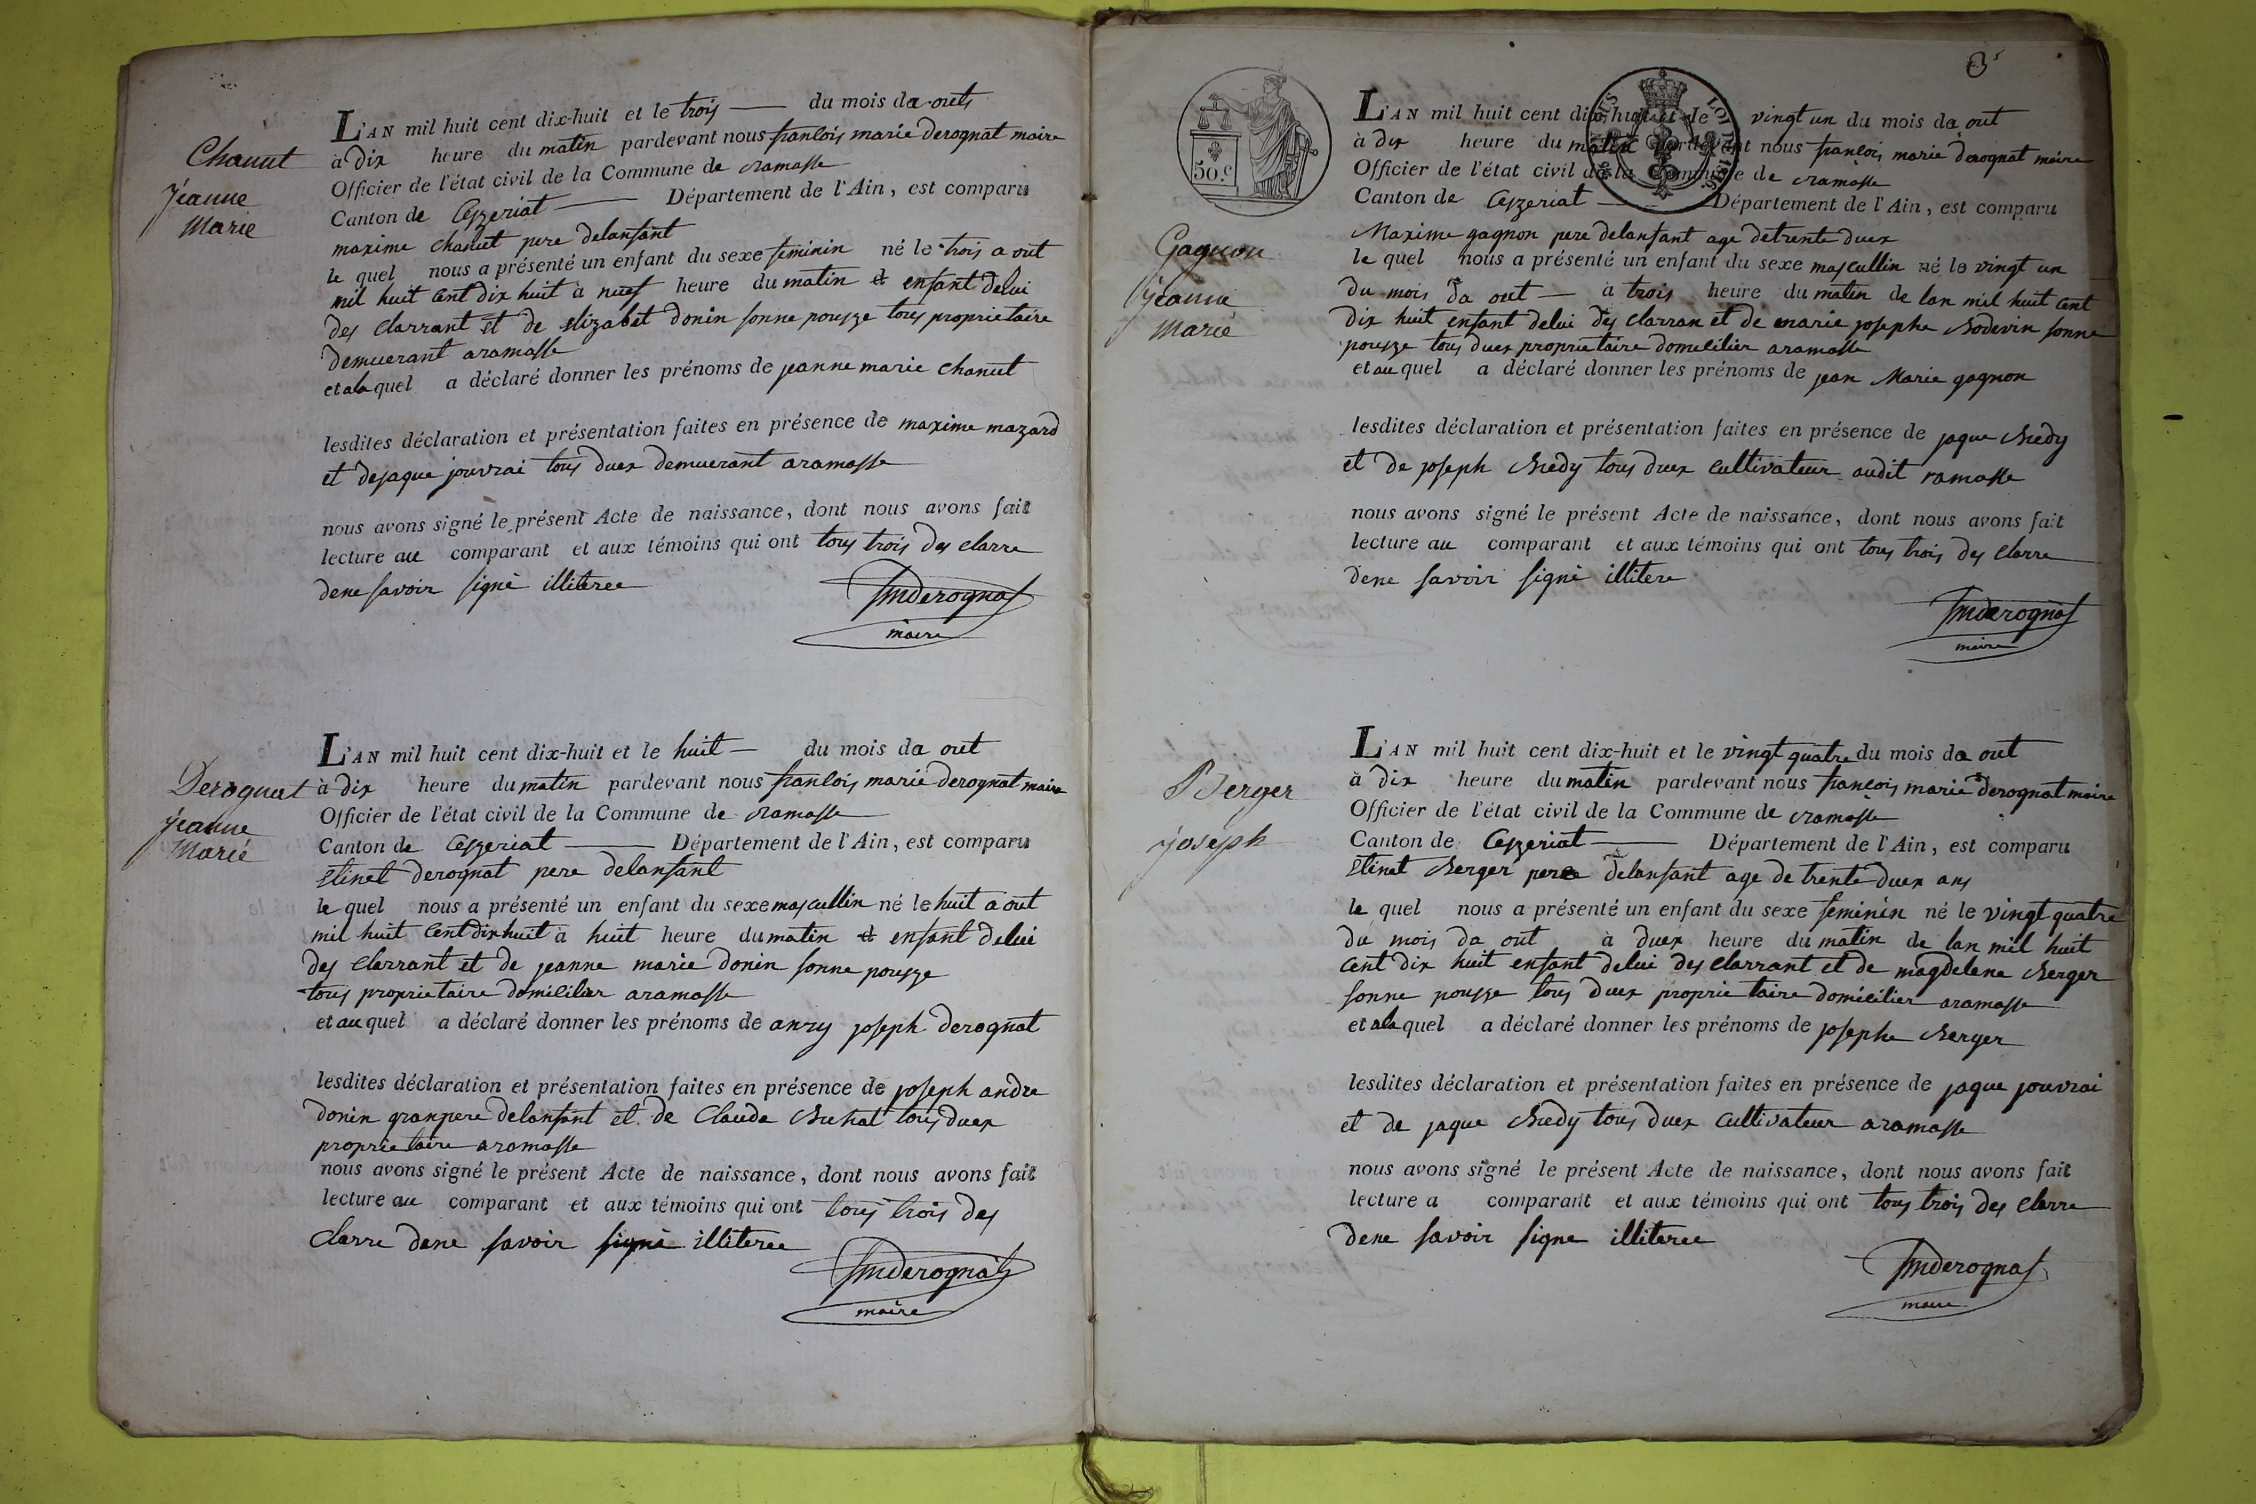 Chanut
jeanne
Marie
L'AN mil huit cent dix-huit et le trois du mois da outs
à dix heure du matin pardevant nous francois marie derognat maire
Officier de l'état civil de la Commune de ramasse
Canton de Ceyzeriat Département de l'Ain, est comparu
maxime chanut pere delanfant
le quel nous a présenté un enfant du sexe feminin né le trois a out
mil huit cent dix huit à neuf heure du matin et enfant delui
des clarrant et de elizabet donin sonne pouze tous proprietaire
demuerant aramasse
et ala quel a déclaré donner les prénoms de jeanne marie chanut
lesdites déclaration et présentation faites en présence de maxime mazard
et dejaque jouvrai tous duex demuerant aramasse
nous avons signé le présent Acte de naissance, dont nous avons fait
lecture au comparant et aux témoins qui ont tous trois des clarre
dene savoir signé illiteree
fmderognat
maire
Derognat
jeanne
Marie
L'AN mil huit cent dix-huit et le huit du mois da out
à dix heure du matin pardevant nous francois marie derognat maire
Officier de l'état civil de la Commune de ramasse
Canton de Ceyzeriat Département de l'Ain, est comparu
etinet derognat pere delanfant
le quel nous a présenté un enfant du sexe mascullin né le huit a out
mil huit cent dix huit à huit heure du matin et enfant delui
des clerrant et de jeanne marie donin sonne pouze
tous proprietaire domicilier aramasse
et au quel a déclaré donner les prénoms de anry joseph derognat
lesdites déclaration et présentation faites en présence de joseph andre
donin granpere delanfant et de Claude Buchat tous duex
proprietaire aramasse
nous avons signé le présent Acte de naissance, dont nous avons fait
lecture au comparant et aux témoins qui ont tous trois des
clarre dene savoir signé illiteree
fmderognat
maire
3
50.c
LOI DE 1816
Gagnon
jeanne
Marie
L'AN mil huit cent dix-huit et le vingt un du mois da out
à dix heure du matin pardevant nous francois marie derognat maire
Officier de l'état civil de la Commune de ramasse
Canton de Ceyzeriat Département de l'Ain, est comparu
Maxime gagnon pere delanfant age detrente duex
le quel nous a présenté un enfant du sexe mascullin né le vingt un
du mois da out à trois heure du matin de lan mil huit cent
dix huit enfant delui des clarran et de marie josephe Bodevin sonne
pouze tous duex proprietaire domicilier aramasse
et au quel a déclaré donner les prénoms de jean Marie gagnon
lesdites déclaration et présentation faites en présence de jaque Bredy
et de joseph Bredy tous duex cultivateur audit ramasse
nous avons signé le présent Acte de naissance, dont nous avons fait
lecture au comparant et aux témoins qui ont tous trois des clarre
dene savoir signé illitere
fmderognat
maire
Berger
joseph
L'AN mil huit cent dix-huit et le vingt quatre du mois da out
à dix heure du matin pardevant nous francois marie derognat maire
Officier de l'état civil de la Commune de ramasse
Canton de Ceyzeriat Département de l'Ain, est comparu
etinet Berger pere delanfant age de trente duex ans
le quel nous a présenté un enfant du sexe feminin né le vingt quatre
du mois da out à duex heure du matin de lan mil huit
cent dix huit enfant delui des clarrant et de magdelene Berger
sonne pouze tous duex proprietaire domicilier aramasse
et ala quel a déclaré donner les prénoms de josephe Berger
lesdites déclaration et présentation faites en présence de jaque jouvrai
et de jaque Bredy tous duex cultivateur aramasse
nous avons signé le présent Acte de naissance, dont nous avons fait
lecture a comparant et aux témoins qui ont tous trois des clarre
dene savoir signe illiteree
fmderognat
maire